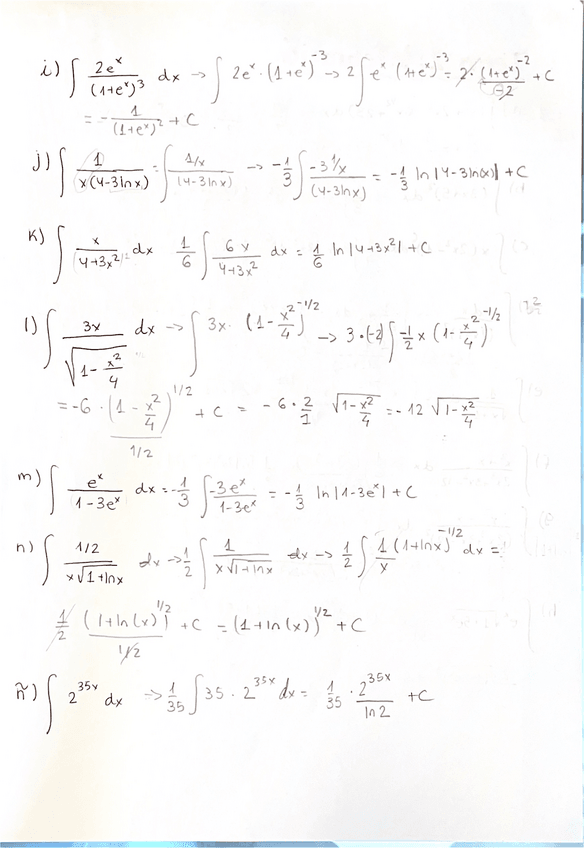 i) ∫ 2eˣ/(1+eˣ)³ dx → ∫ 2eˣ·(1+eˣ)⁻³ → 2∫ eˣ (1+eˣ)⁻³ = 2·(1+eˣ)⁻²/-2 + C
= -1/(1+eˣ)² + C
j) ∫ 1/x(4-3lnx) = ∫ 1/x/(4-3lnx) → -1/3 ∫ -3 1/x/(4-3lnx) = -1/3 ln|4-3ln(x)| + C
K) ∫ x/4+3x² dx 1/6 ∫ 6x/4+3x² dx = 1/6 ln|4+3x²| + C
l) ∫ 3x/√(1-x²/4) dx → ∫ 3x·(1-x²/4)^-1/2 → 3·(-2)∫ -1/2 x (1-x²/4)^-1/2
= -6·(1-x²/4)^1/2/1/2 + C = -6·2/1 √(1-x²/4) = -12 √(1-x²/4)
m) ∫ eˣ/1-3eˣ dx = -1/3 ∫ -3eˣ/1-3eˣ = -1/3 ln|1-3eˣ| + C
n) ∫ 1/2/x√(1+lnx) dx → 1/2 ∫ 1/x√(1+lnx) dx → 1/2 ∫ 1/x (1+lnx)^-1/2 dx =
1/2 (1+ln(x))^1/2/1/2 + C = (1+ln(x))^1/2 + C
ñ) ∫ 2^35x dx → 1/35 ∫ 35·2^35x dx = 1/35 · 2^35x/ln2 + C